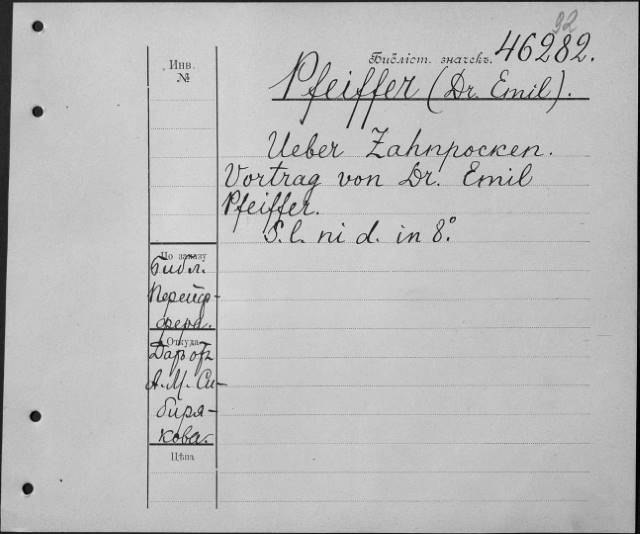 92
Библіот. значекъ. 46282.
Инв.
№
Pfeiffer (Dr. Emil).
Ueber Zahnpocken.
Vortrag von Dr. Emil
Pfeiffer.
S. l. ni d. in 8.°
По заказу
Библ.
Пфейф-
фера.
Откуда
Даръ отъ
А. М. Си-
биря-
кова.
Цѣна